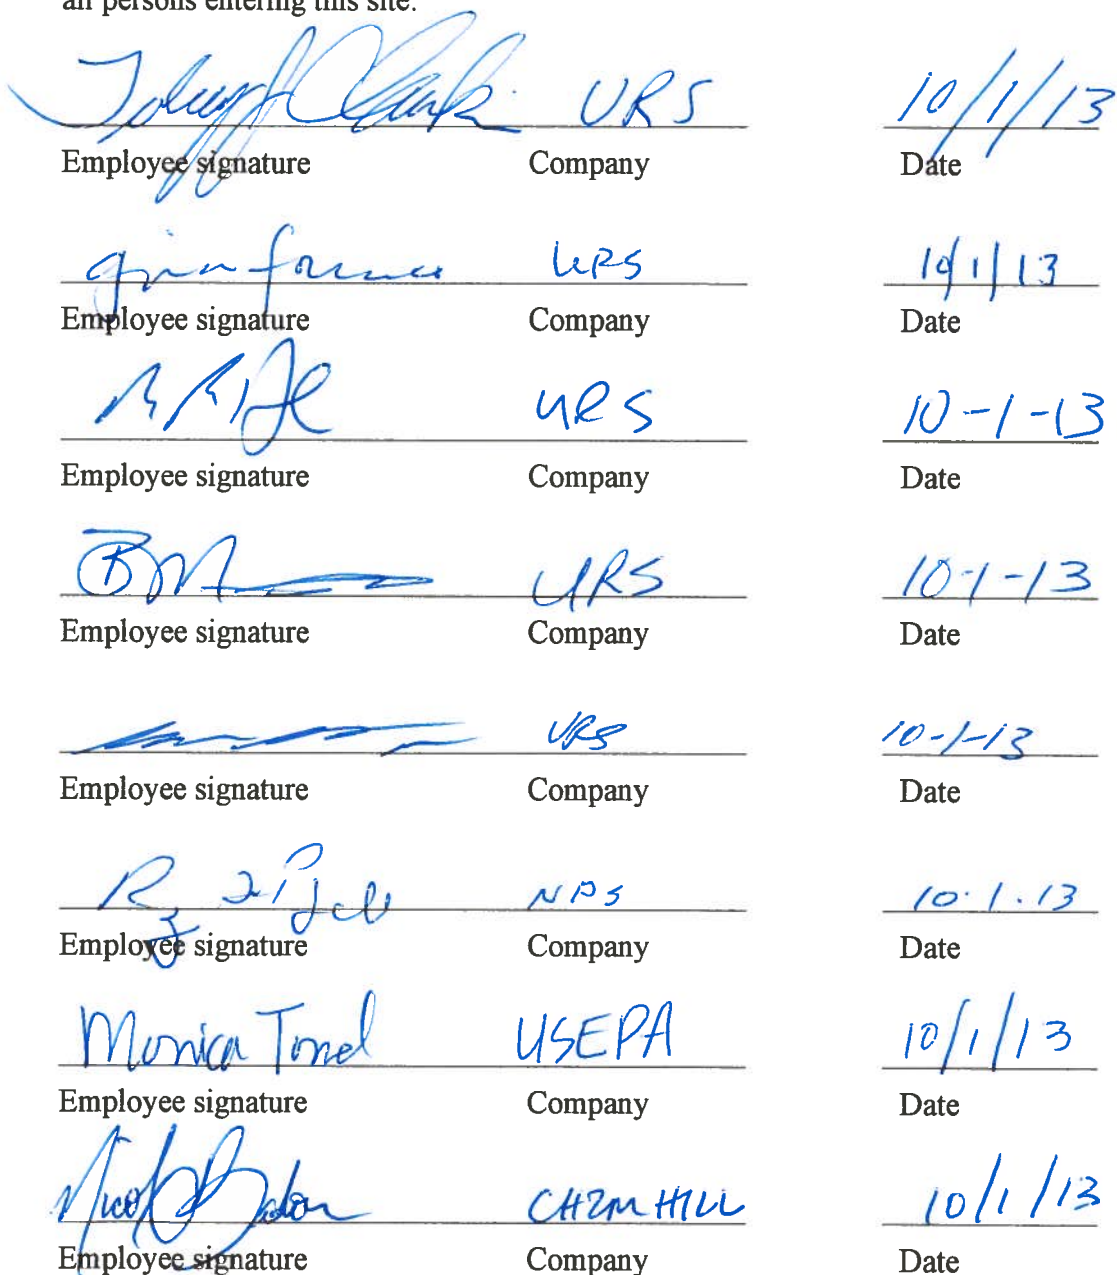 all persons entering this site.
URS 10/1/13
Employee signature Company Date
URS 10/1/13
Employee signature Company Date
URS 10-1-13
Employee signature Company Date
URS 10-1-13
Employee signature Company Date
URS 10-1-13
Employee signature Company Date
NPS 10.1.13
Employee signature Company Date
Monica Tonel USEPA 10/1/13
Employee signature Company Date
CH2M HILL 10/1/13
Employee signature Company Date